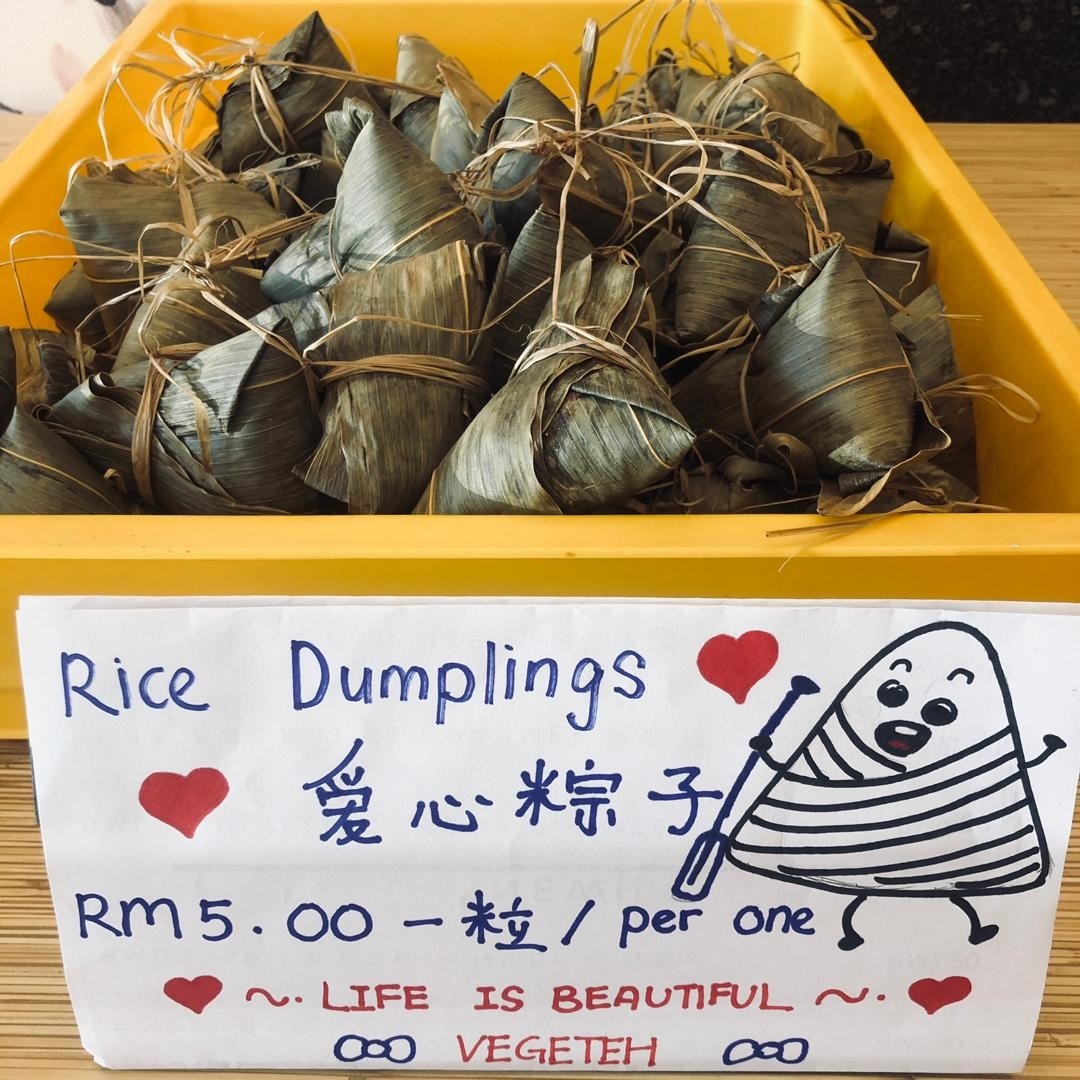 Rice Dumplings
爱心粽子
RM5.00 一粒 / per one
~. LIFE IS BEAUTIFUL ~.
VEGETEH